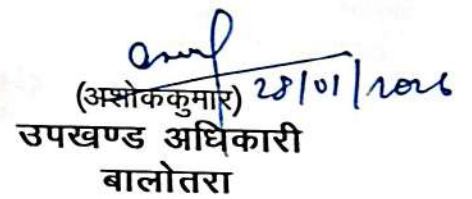 (अशोककुमार) 28/01/2026
उपखण्ड अधिकारी
बालोतरा